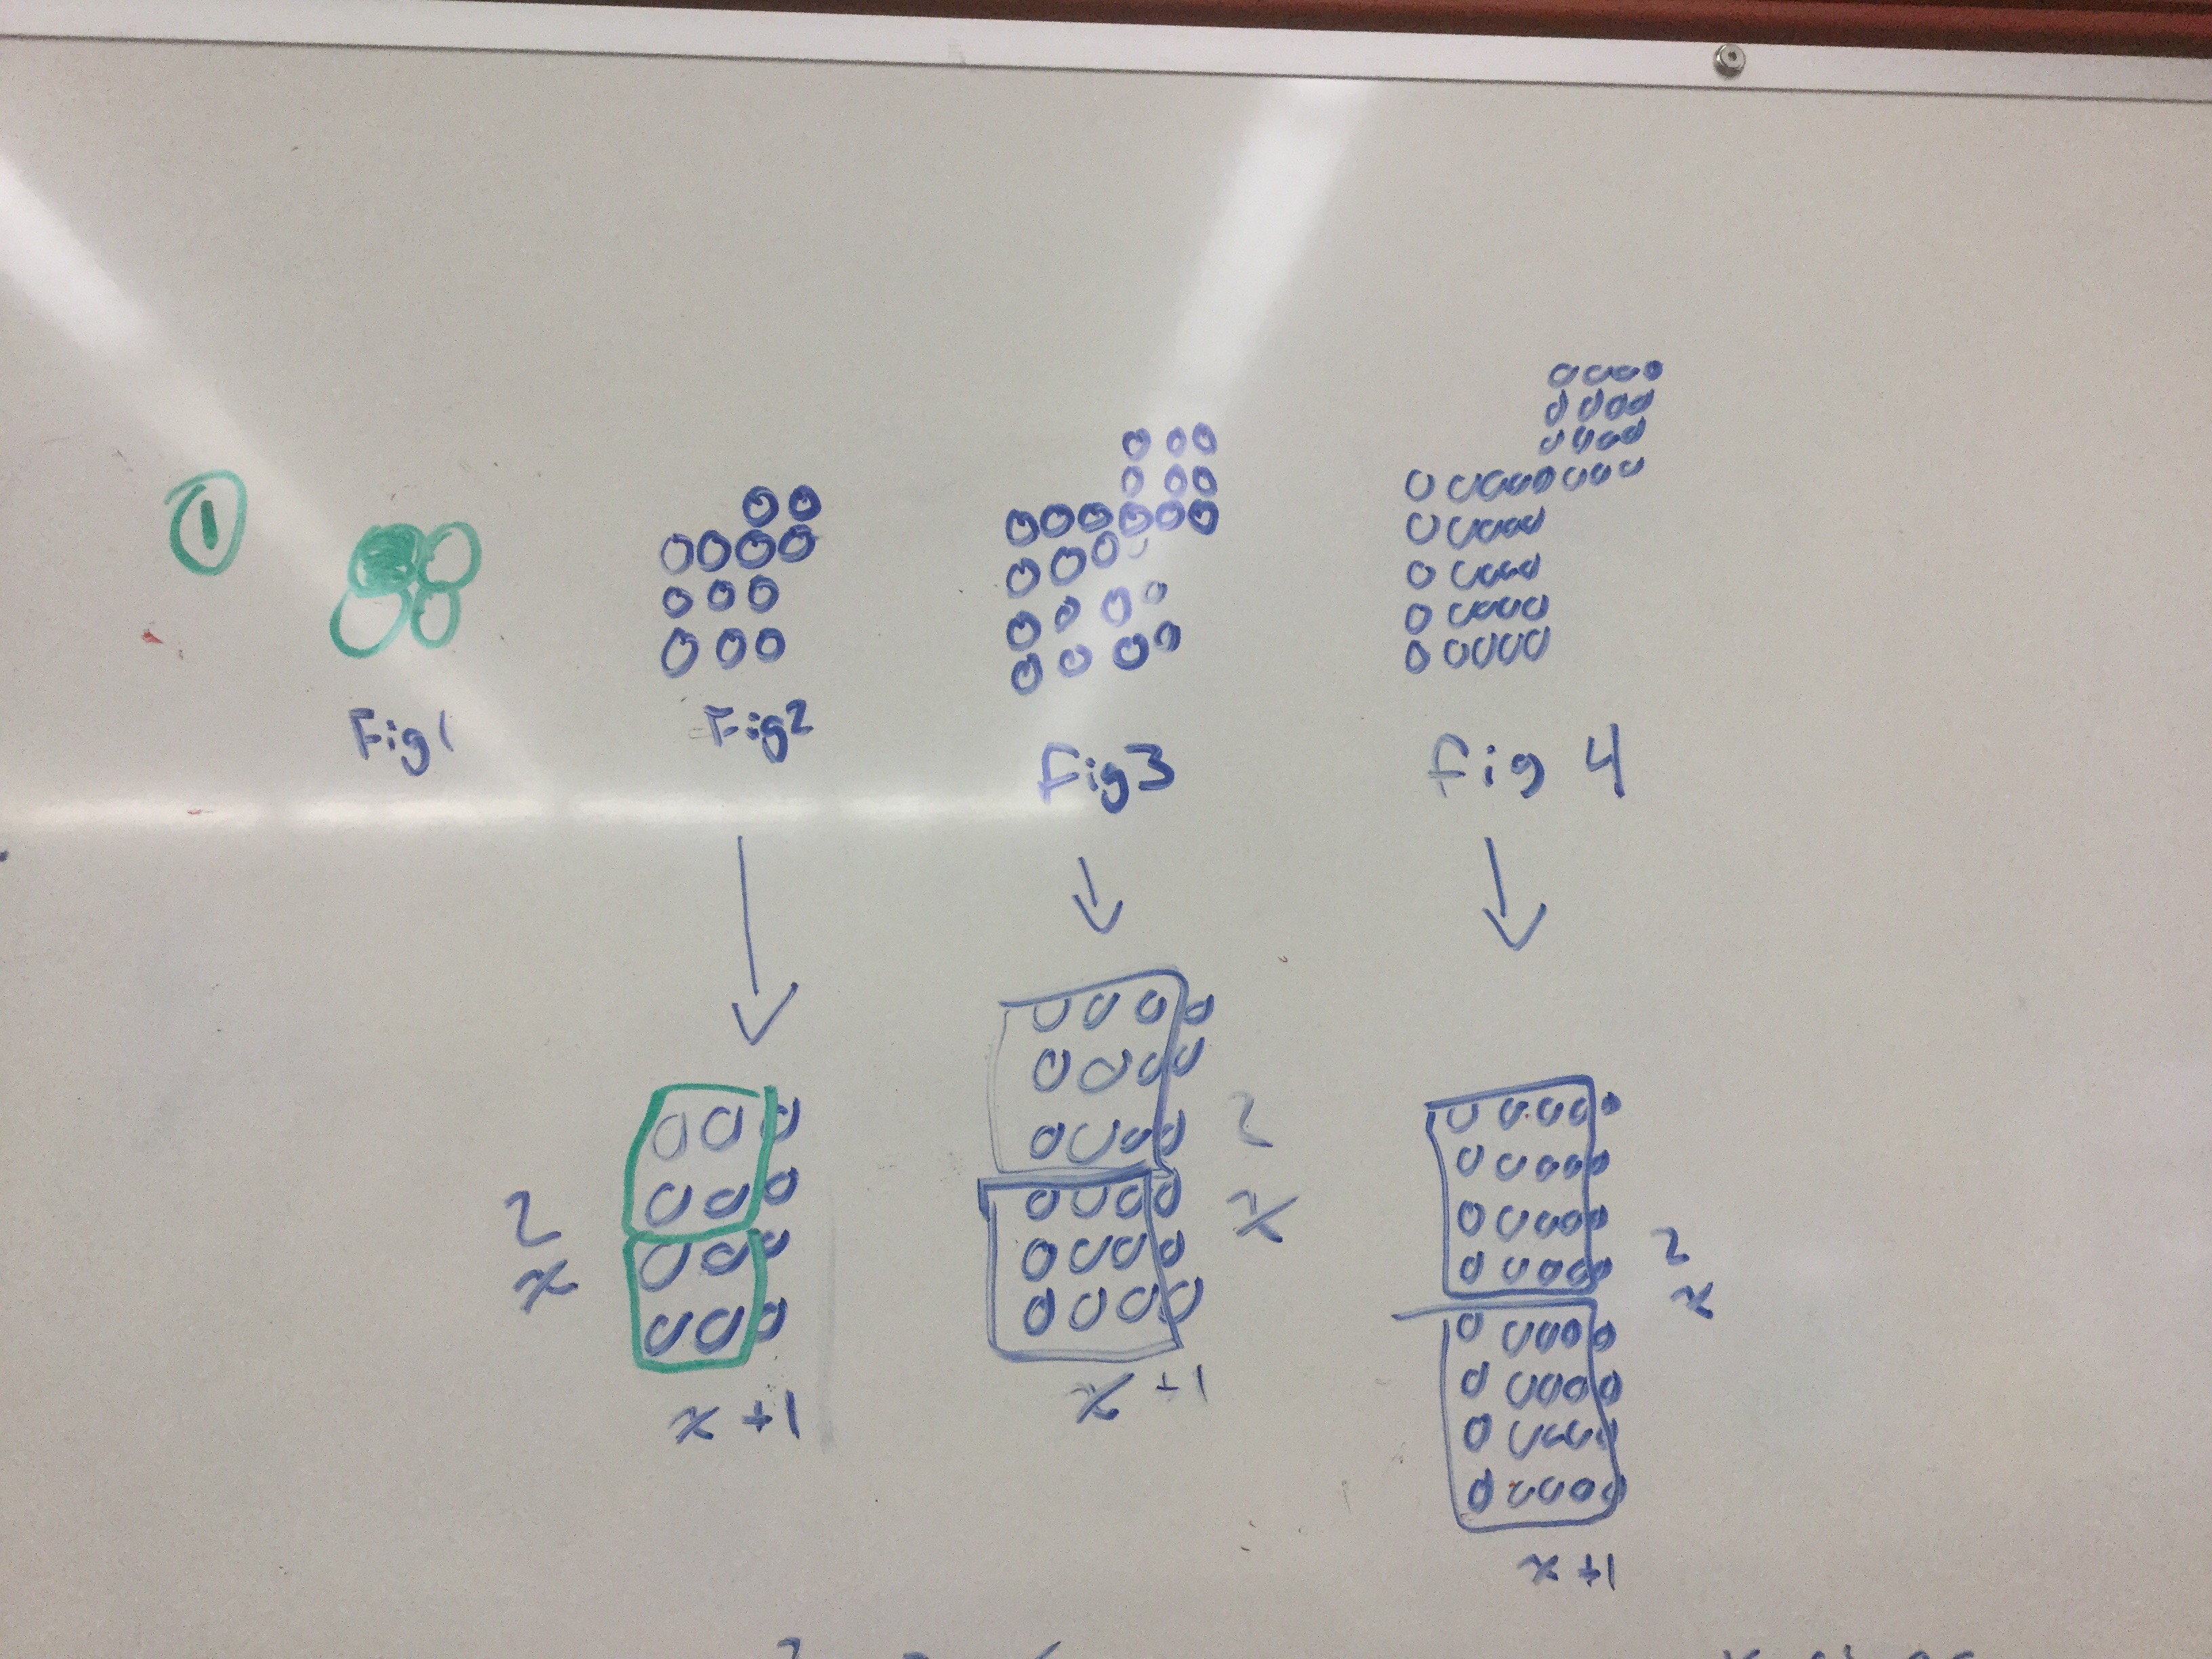 1
Fig 1 Fig 2 Fig 3 Fig 4
2
x
x + 1
2
x
x + 1
2
x
x + 1